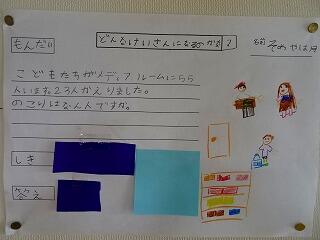 もんだい
どんなけいさんになるのかな?
名前
こどもたちがメディアルームに
人います。23人かえりました。
のこりはなん人ですか。
しき
答え